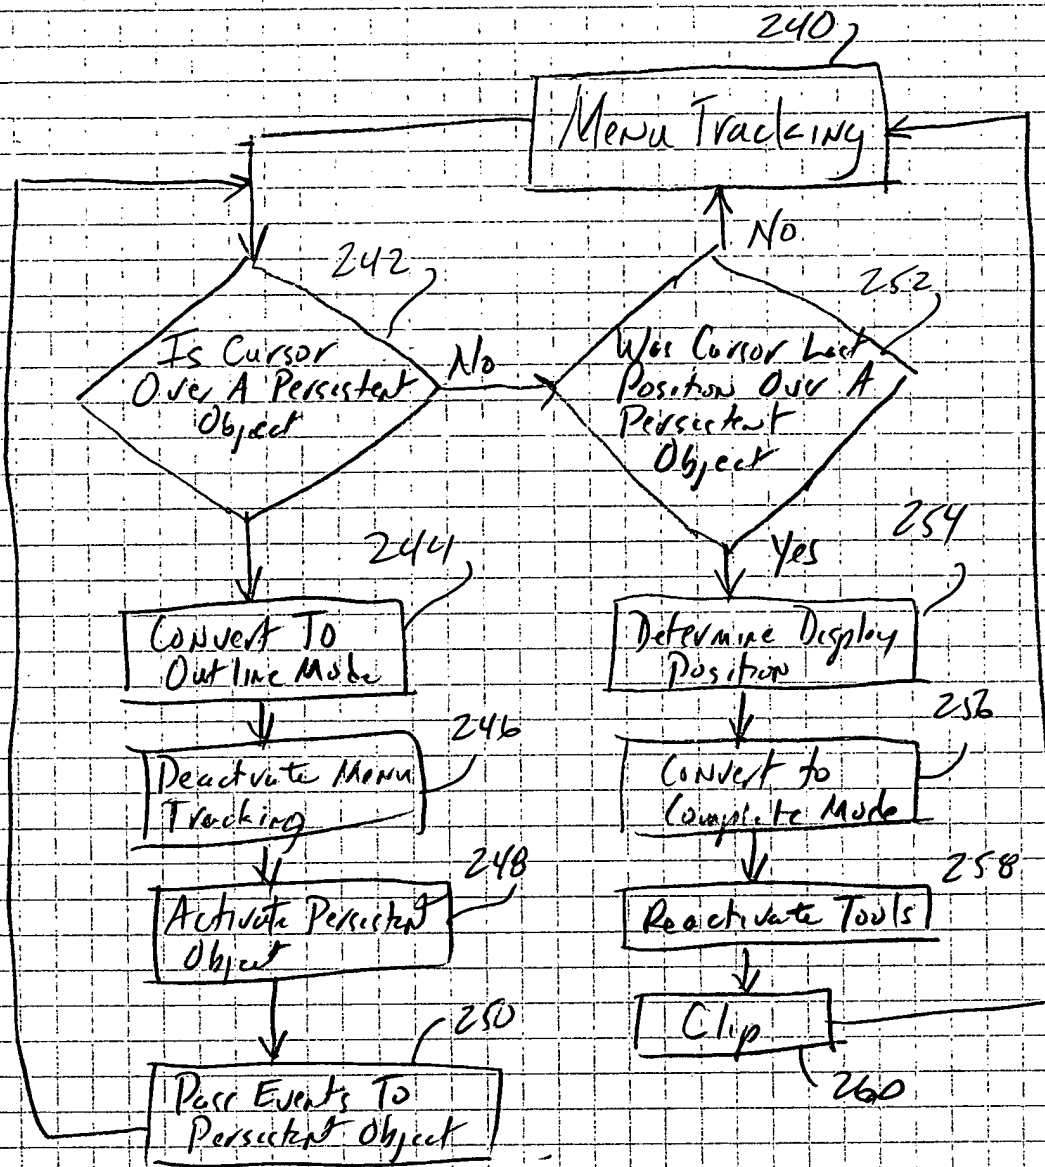 240
Menu Tracking
No
242
252
Is Cursor
Over A Persistent
Object
No
Was Cursor Last
Position Over A
Persistent
Object
244
Yes
254
Convert To
Outline Mode
Determine Display
Position
246
256
Deactivate Menu
Tracking
Convert to
Complete Mode
248
258
Activate Persistent
Object
Reactivate Tools
250
Clip
260
Pass Events To
Persistent Object